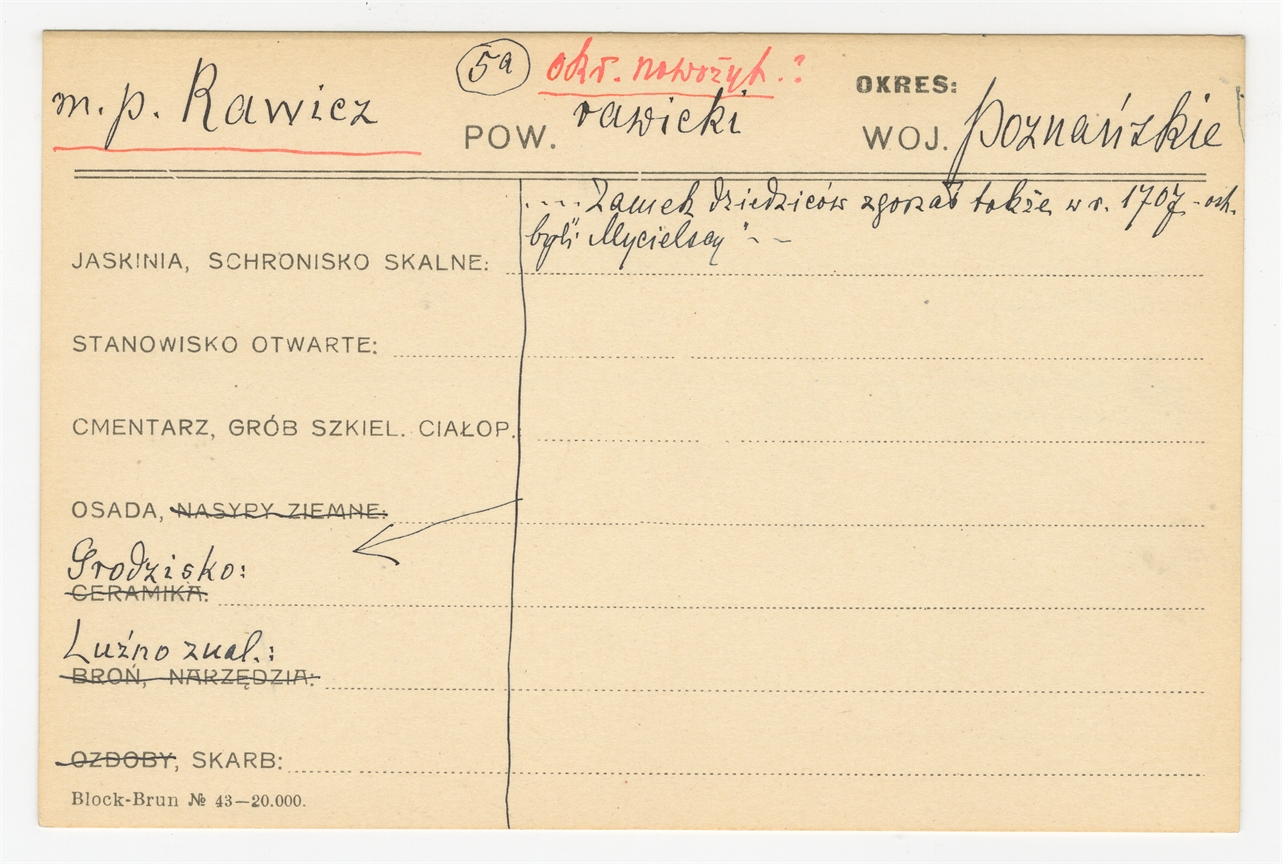 5a okr. nowożyt.?
OKRES:
m. p. Rawicz POW. rawicki WOJ. Poznańskie
.... Zamek dziedziców zgorzał także w r. 1707 -
byli Mycielscy" - -
JASKINIA, SCHRONISKO SKALNE:
STANOWISKO OTWARTE:
CMENTARZ, GRÓB SZKIEL. CIAŁOP.
OSADA, NASYPY ZIEMNE:
Grodzisko:
CERAMIKA:
Luźno znal.:
BROŃ, NARZĘDZIA:
OZDOBY, SKARB:
Block-Brun № 43—20.000.